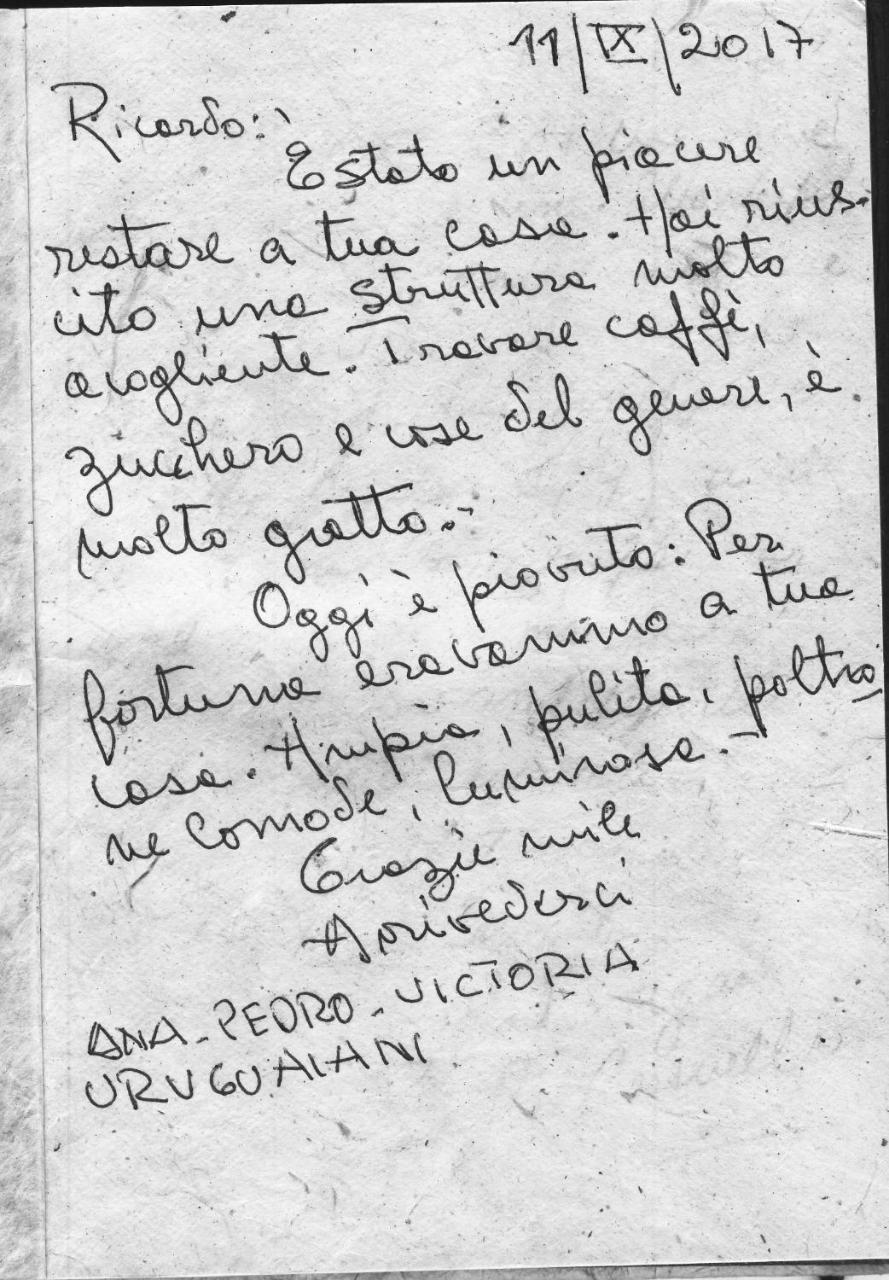 11/IX/2017
Ricardo:
È stato un piacere
restare a tua casa. Hai rius-
cito una struttura molto
acogliente. Trovare caffè,
zucchero e cose del genere, è
molto gratto.-
Oggi è piovuto: Per
fortuna eravammo a tua
casa. Ampia, pulita, poltro
ne comode, luminosa.-
Grazie mile
Arrivederci
ANA - PEDRO - VICTORIA
URUGUAIANI